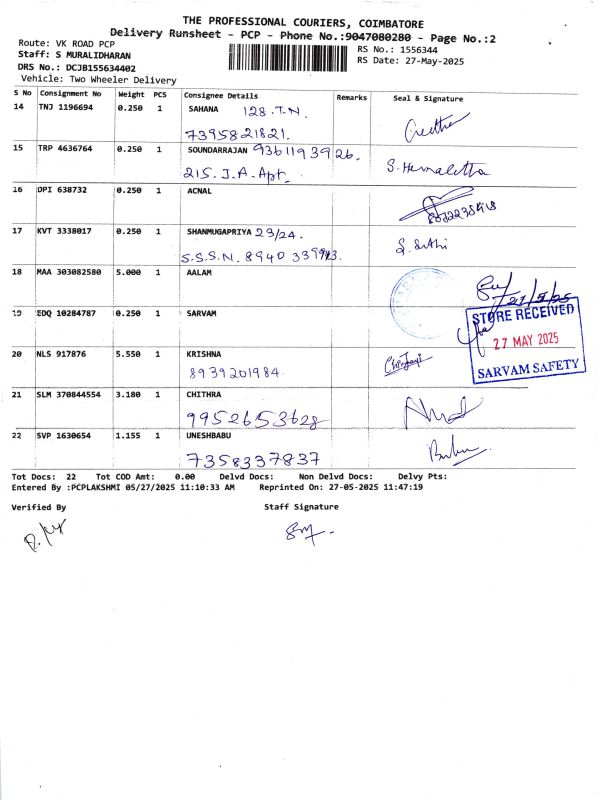 THE PROFESSIONAL COURIERS, COIMBATORE
Delivery Runsheet - PCP - Phone No.:9047080280 - Page No.:2
Route: VK ROAD PCP
Staff: S MURALIDHARAN
DRS No.: DCJB155634402
Vehicle: Two Wheeler Delivery
RS No.: 1556344
RS Date: 27-May-2025
S No Consignment No Weight PCS Consignee Details Remarks Seal & Signature
14 TNJ 1196694 0.250 1 SAHANA 128.T.N.
7395821821.
15 TRP 4636764 0.250 1 SOUNDARRAJAN 9361193926.
215. J.A. Apt. S. Hemalatha
16 DPI 638732 0.250 1 ACNAL
17 KVT 3338017 0.250 1 SHANMUGAPRIYA 23/24.
S.S.S.N. 8940339943.
18 MAA 303082580 5.000 1 AALAM
27/5/25
19 EDQ 10284787 0.250 1 SARVAM
STORE RECEIVED
27 MAY 2025
SARVAM SAFETY
20 NLS 917876 5.550 1 KRISHNA
8939201984.
21 SLM 370844554 3.180 1 CHITHRA
9952653628
22 SVP 1630654 1.155 1 UNESHBABU
7358337837
Tot Docs: 22 Tot COD Amt: 0.00 Delvd Docs: Non Delvd Docs: Delvy Pts:
Entered By :PCPLAKSHMI 05/27/2025 11:10:33 AM Reprinted On: 27-05-2025 11:47:19
Verified By Staff Signature